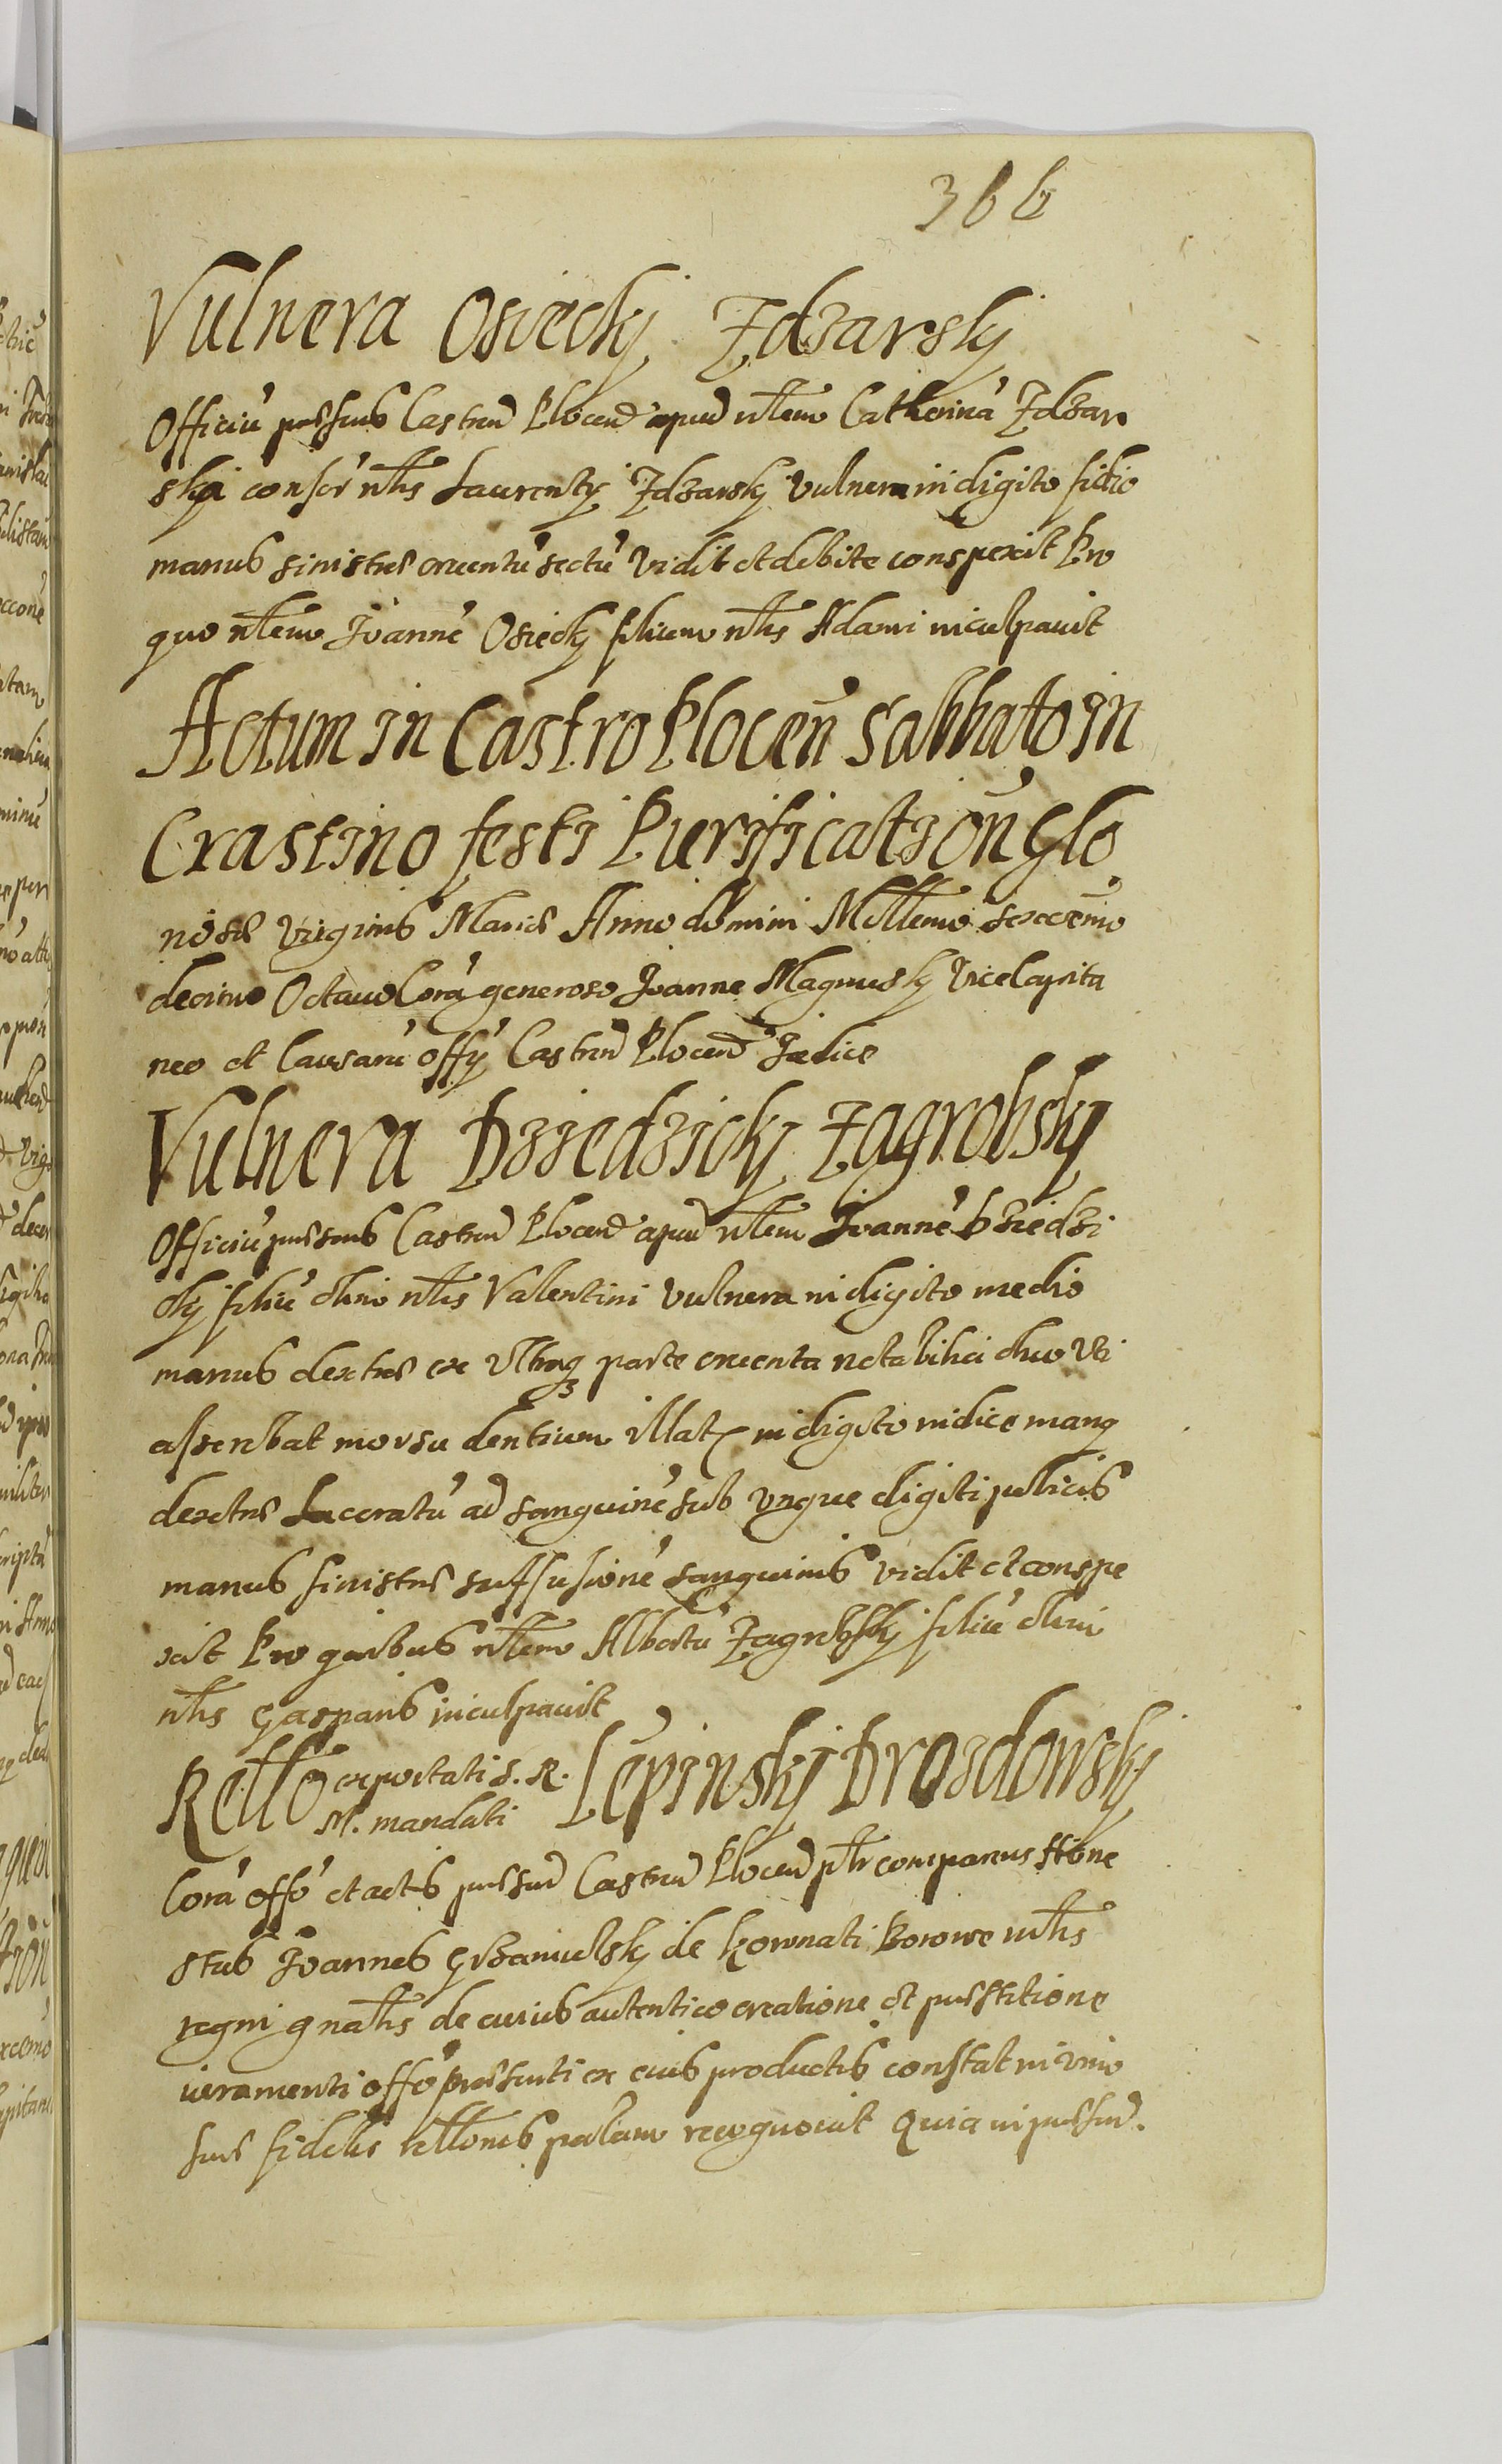 366
Vulnera Osiecky Zdzarsky
Officiũ pñsens Castreñ Plocen̄ apud nłem Catherinã Zdzar
ską consor̃ nłis Laurenty Zdzarsky vulnera in digito
manus sinistræ cruentũ sectũ vidit et debite conspexit Pro
quo nłem Joannẽ Osiecky filium nłis Adami inculpavit
Actum in Castro Plocen̄ Sabbato in
Crastino festi Purification̄ Glo
riosæ Virginis Mariæ Anno domini Millemo sexcenmo
decimo Octavo Corã generoso Joanne Magnusky ViceCapita
neo et Causarũ offy Castreñ Plocen̄ Judice
Vulnera Dziedzicky Zagrobsky
Officiũ pñsens Castreñ Plocen̄ apud nłem Joannẽ Dziedzi
cky filiũ olim nłis Valentini vulnera in digito medio
manus dextræ ex utraq3 parte cruenta notabilia duo uti
asserebat morsu dentium illata in digito indice manq
dextræ laceratũ ad sanguinẽ sub ungue digiti pollicis
manus sinistræ suffusionẽ sanguinis vidit et conspe
xit Pro quibus nłem Albertũ Zagrobsky filiũ olim
nłis Gasparis inculpavit
Rełło exportati S. R.
M. mandati Lępinsky Drozdowsky
Corã offõ et actis pñsen̄ Castreñ Plocen̄ płr comparens Hone
stus Joannes Grzanulsky de Kownati Borowe młis
regni gnałis de cuius autentico creatione et præstitione
iuramenti offõ præsenti ex eius productis constat in vim
suæ fidelis rełłonis palam recognovit Quia in pñsen̄.